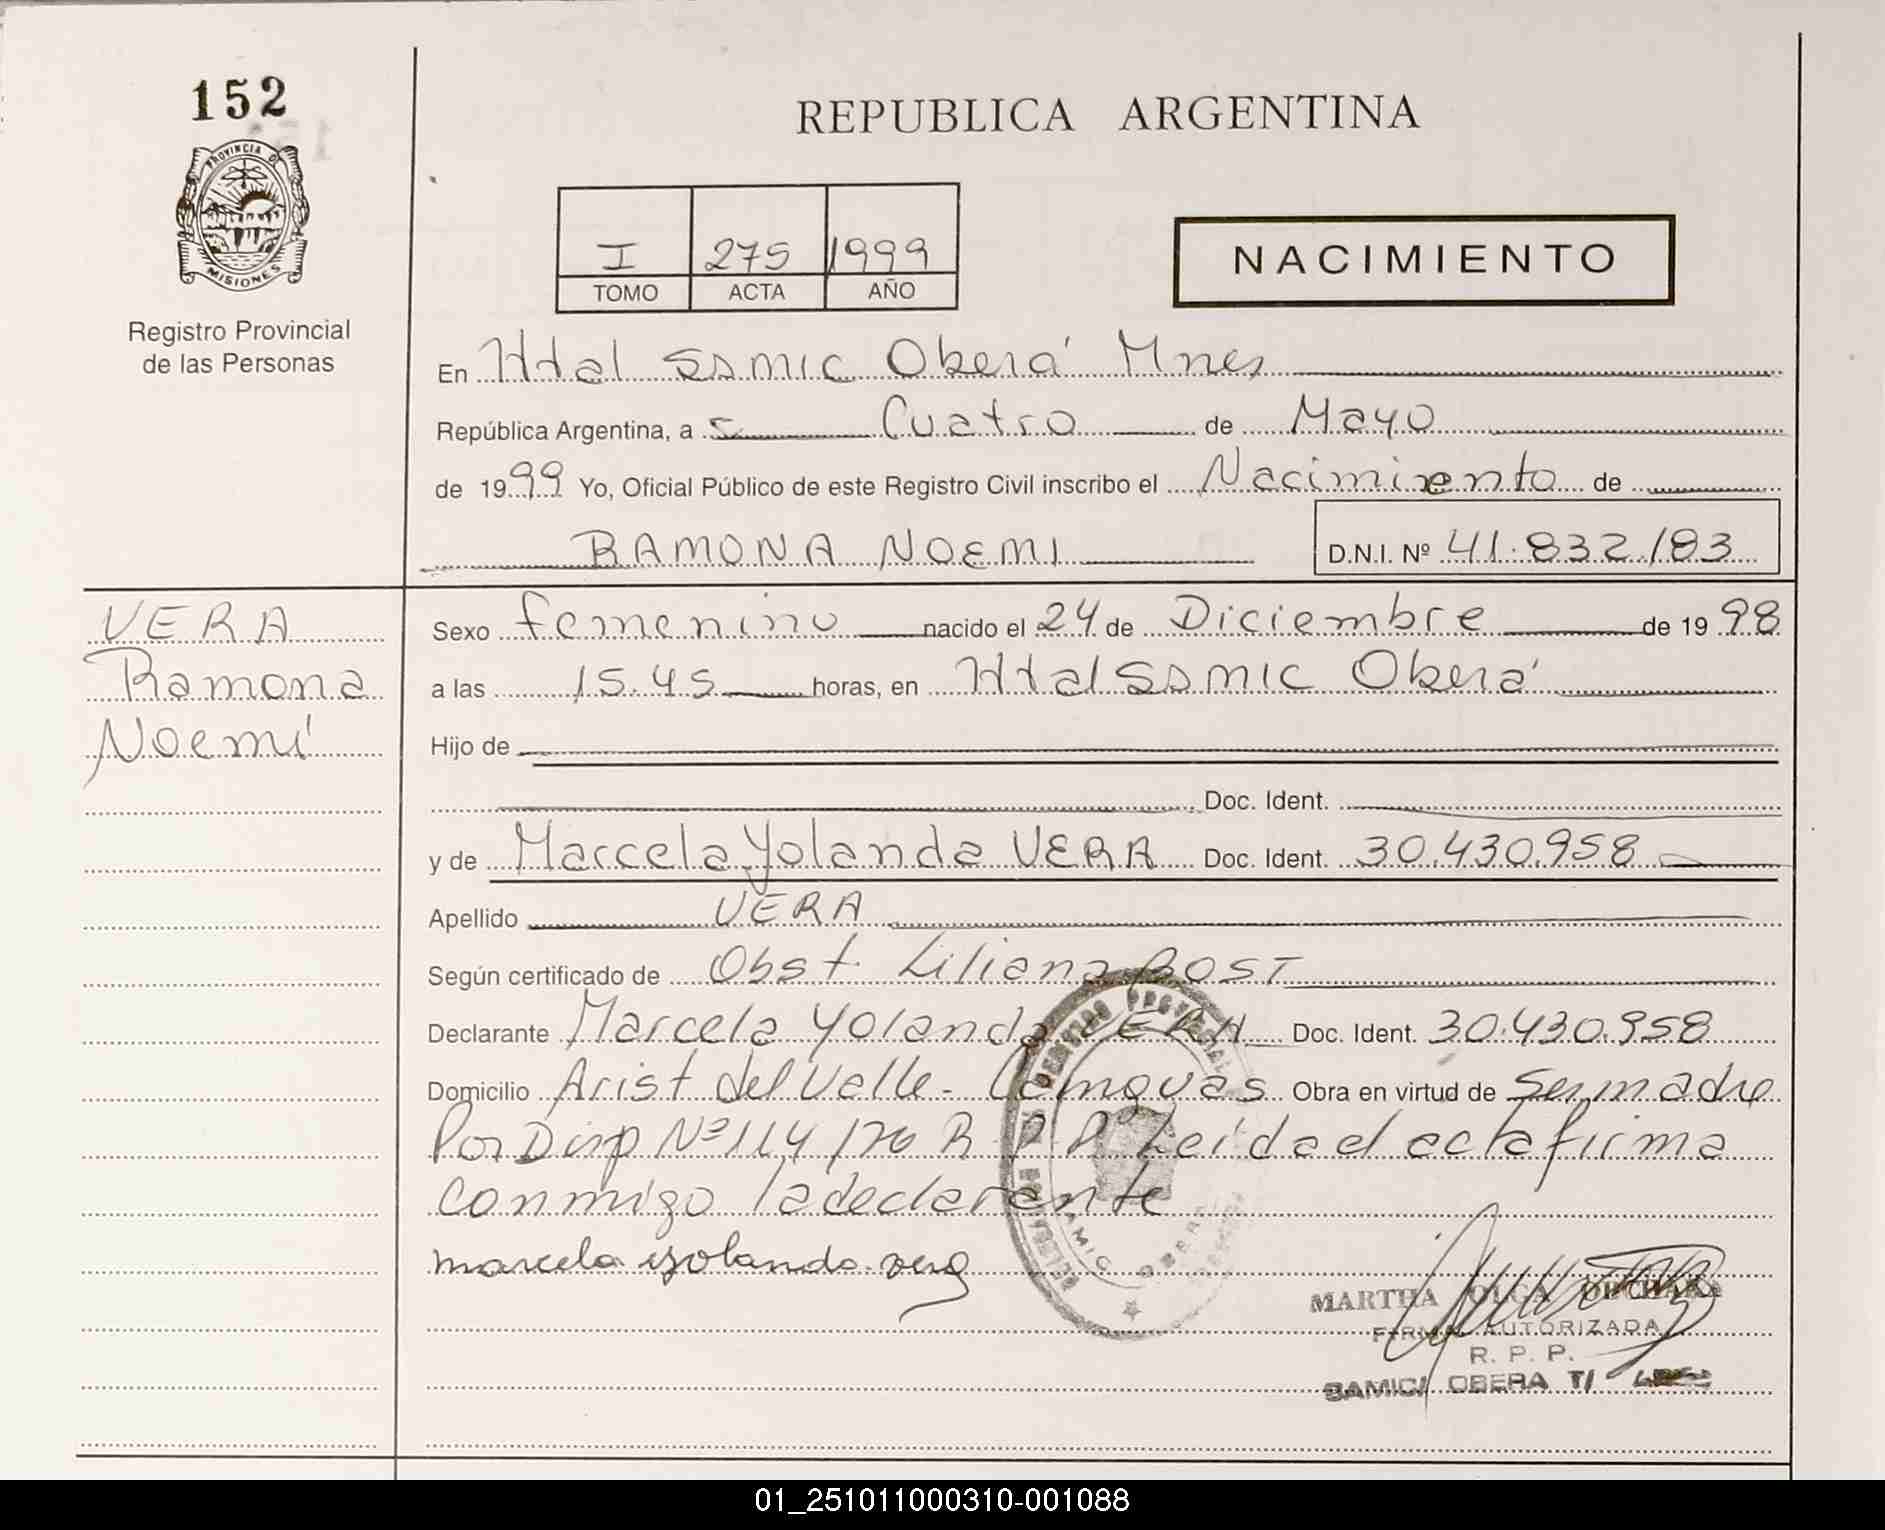 152
REPUBLICA ARGENTINA
PROVINCIA D
MISIONES
Registro Provincial
de las Personas
I 275 1999
TOMO ACTA AÑO
NACIMIENTO
En Htal SSMIC Oberá Mnes
República Argentina, a Cuatro de Mayo
de 1999 Yo, Oficial Público de este Registro Civil inscribo el Nacimiento de
RAMONA NOEMI D.N.I. Nº 41.832.183
VERA
Ramona
Noemí
Sexo femenino nacido el 24 de Diciembre de 1998
a las 15.45 horas, en Htal SSMIC Oberá
Hijo de
Doc. Ident.
y de Marcela Yolanda VERA Doc. Ident. 30.430.958
Apellido VERA
Según certificado de Obst Liliana BOST
Declarante Marcela Yolanda VERA Doc. Ident. 30.430.958
Domicilio Arist del Valle - Caínguas Obra en virtud de Ser madre
Por Disp Nº 114/76 R P P Leída el acta firma
conmigo la declarante
marcela yolanda vera
MARTHA OLGA
FIRMA AUTORIZADA
R. P. P.
SAMIC/ OBERA T/
SAMIC OBERA
01_251011000310-001088